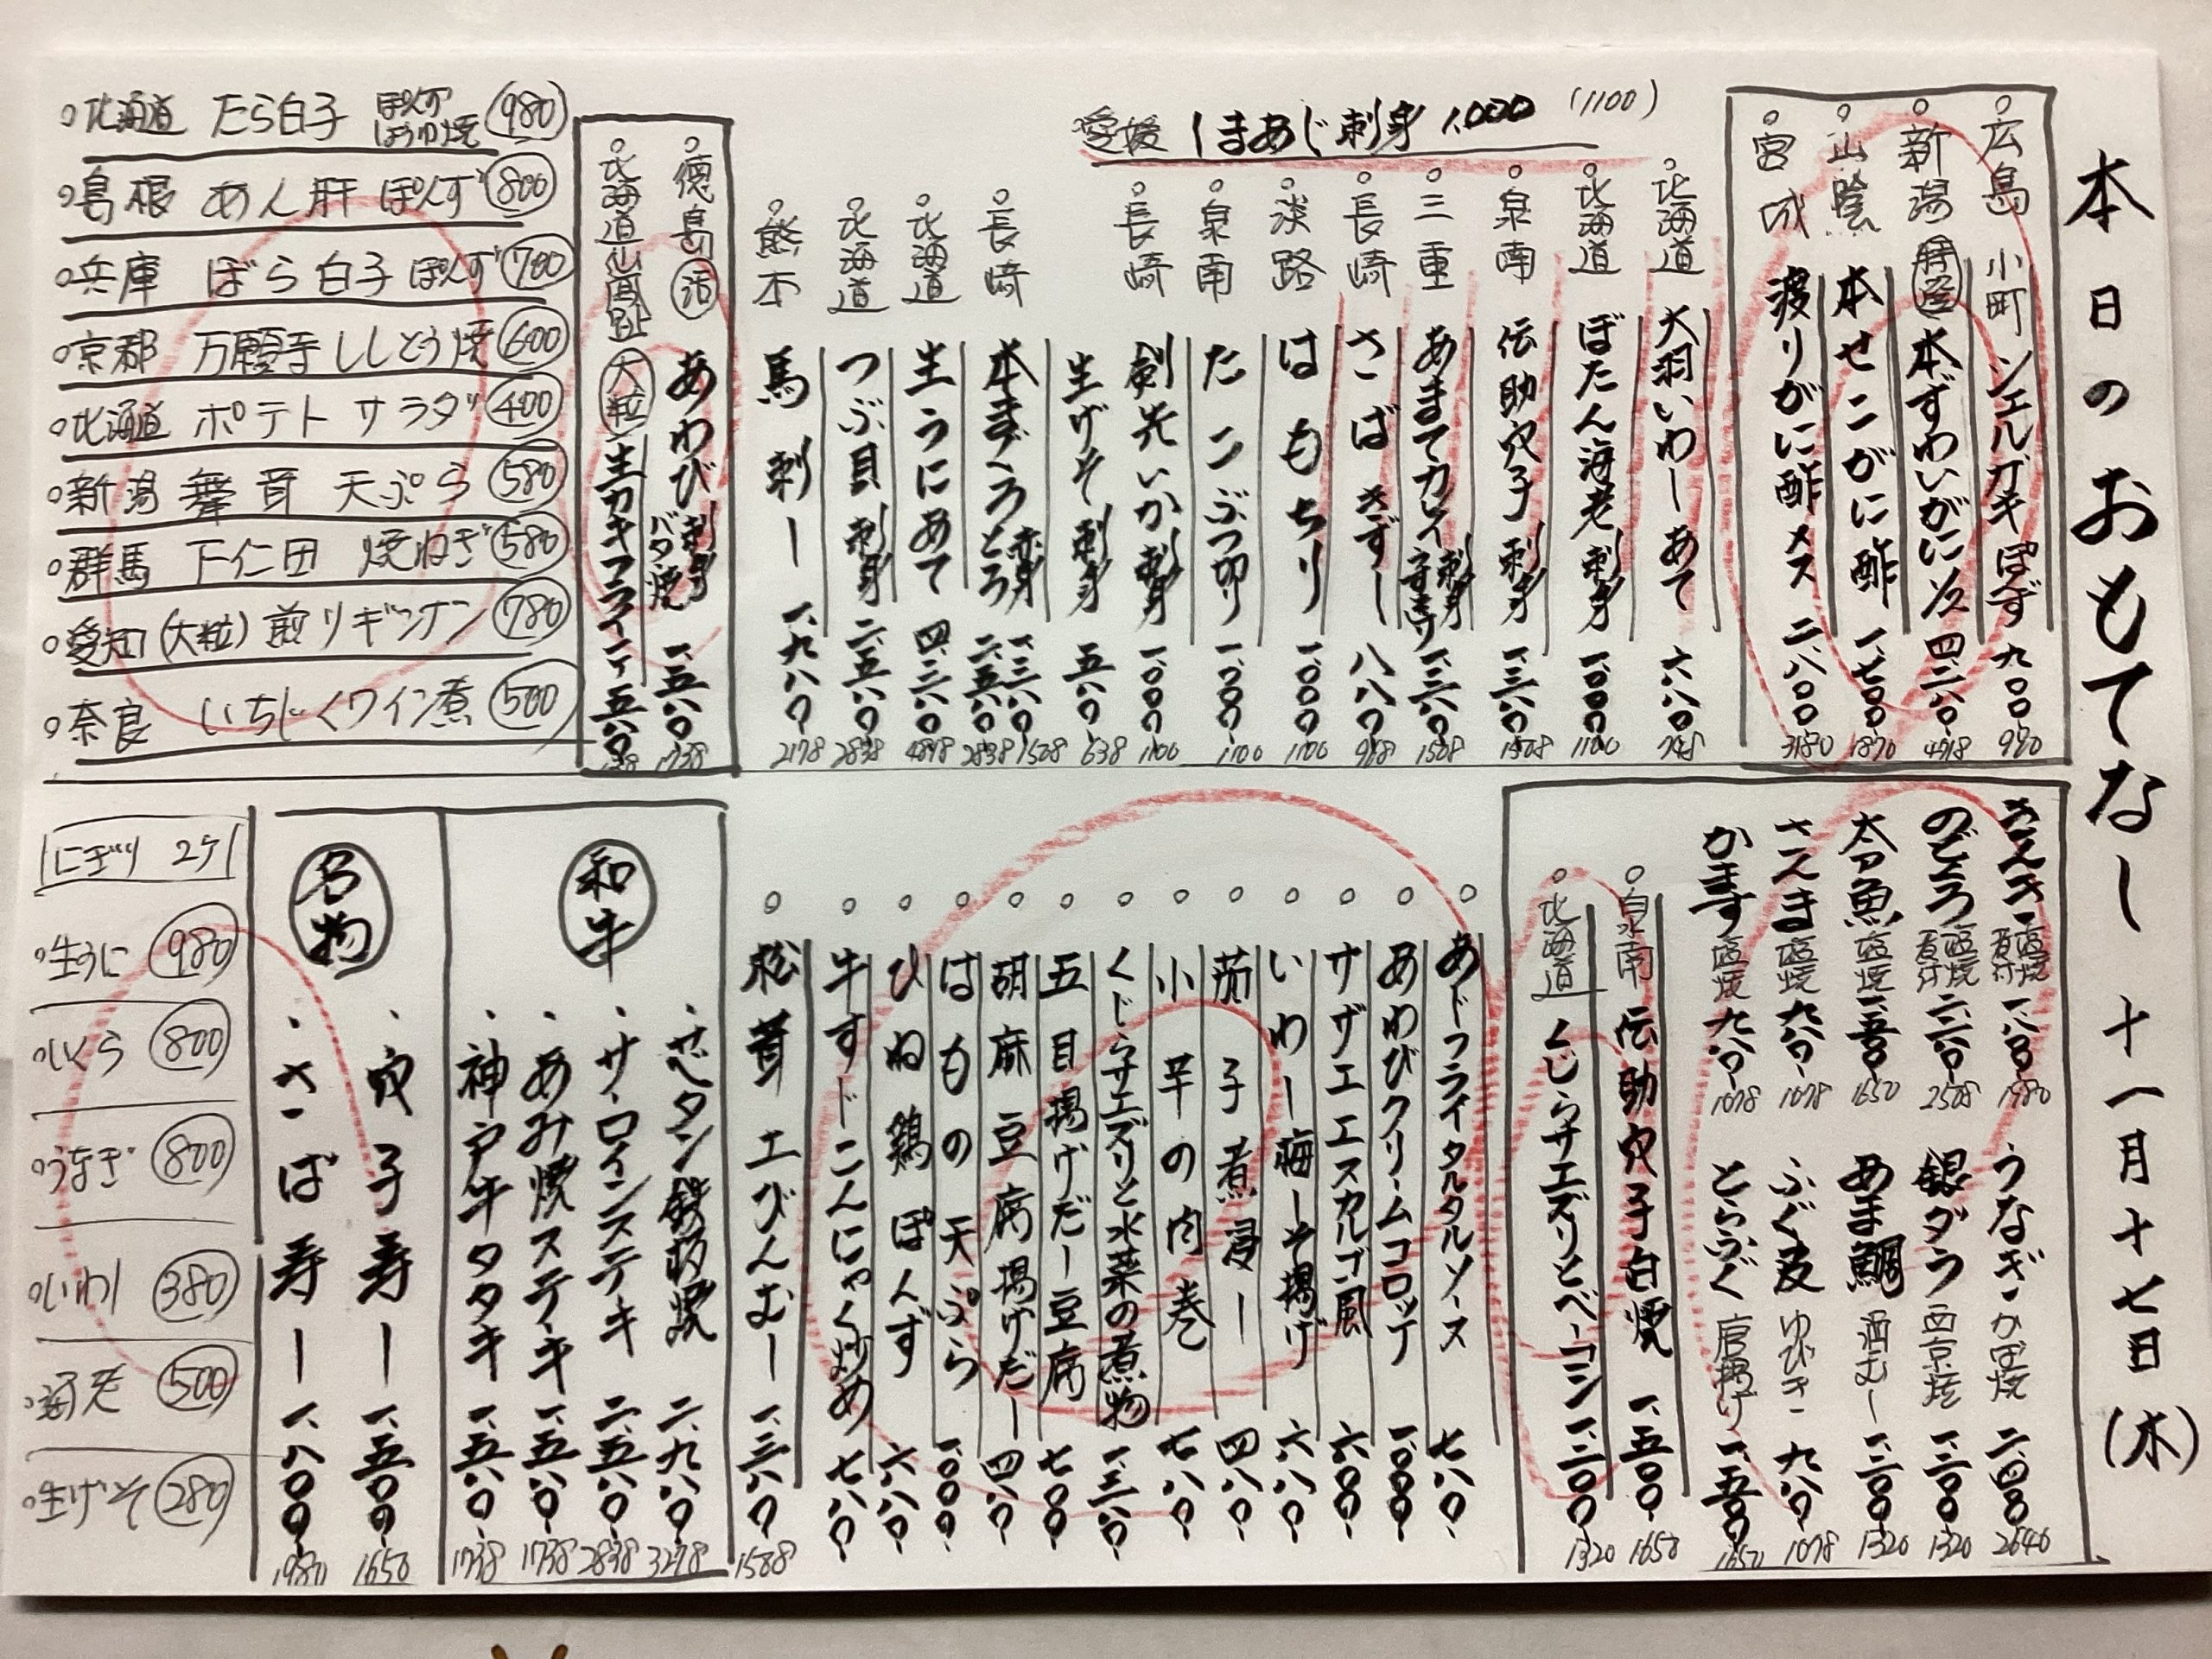 本日のおもてなし 十一月十七日(木)
広島 小町 シェルガキ ぽんず 九〇〇 990
新潟 本ずわいがに 1/2
山陰 本せこがに酢 一、七〇〇 1870
宮城 渡りがに酢 メス 二、八〇〇
愛媛 しまあじ刺身 1,000 (1100)
北海道 大羽いわしあて 六八〇
北海道 ぼたん海老 刺身 一、〇〇〇 1100
泉南 伝助穴子 刺身
三重 あまてカレイ 刺身
長崎 さば きずし 八八〇 968
淡路 はもちり 一、〇〇〇 1100
泉南 たこぶつ切り 一、〇〇〇 1100
長崎 剣先いか 刺身 一、〇〇〇 1100
生げそ 刺身 五八〇 638
長崎 本まぐろ 赤身 とろ
北海道 生うにあて
北海道 つぶ貝 刺身 二、五八〇 2838
熊本 馬刺し 一、九八〇 2178
徳島 活 あわび 刺身 バタ焼 一、五八〇 1738
北海道仙鳳趾 大粒 生カキフライ 一ケ 五八〇
北海道 たら白子 ぽんず しょうゆ焼 980
島根 あん肝 ぽんず 800
兵庫 ぼら白子 ぽんず 700
京都 万願寺ししとう焼 600
北海道 ポテトサラダ 400
新潟 舞茸 天ぷら 580
群馬 下仁田 焼ねぎ 580
愛知 (大粒) 煎りギンナン 780
奈良 いちじくワイン煮 500
のどぐろ 塩焼 煮付
太刀魚 塩焼 一、五〇〇 1650
さんま 塩焼 九八〇 1078
かます 塩焼 九八〇 1078
うなぎ かば焼 二、四〇〇 2640
銀ダラ 西京焼 一、二〇〇 1320
あま鯛 酒むし 一、二〇〇 1320
ふぐ皮 ゆびき 九八〇 1078
とらふぐ 唐揚げ 一、五〇〇 1650
泉南 伝助穴子白焼 一、五〇〇 1650
北海道 くじらサエズリとベーコン 一、二〇〇 1320
あじフライタルタルソース 七八〇
あわびクリームコロッケ 一、〇〇〇
サザエエスカルゴ風 六〇〇
いわし梅しそ揚げ 六八〇
茄子煮浸し 四八〇
小芋の肉巻 七八〇
くじらサエズリと水菜の煮物
五目揚げだし豆腐 七〇〇
胡麻豆腐揚げだし 四八〇
はもの天ぷら 一、〇〇〇
ひね鶏ぽんず 六八〇
牛すじこんにゃく炒め 七八〇
松茸エビしんじょ
和牛
タン鉄板焼 二、九八〇 3278
サーロインステーキ 二、五八〇 2838
あみ焼ステーキ 一、五八〇 1738
神戸牛タタキ 一、五八〇 1738
名物
穴子寿し 一、五〇〇 1650
さば寿し 一、八〇〇 1980
にぎり 2ケ
生うに 980
いくら 800
うなぎ 800
いわし 380
海老 500
生げそ 280